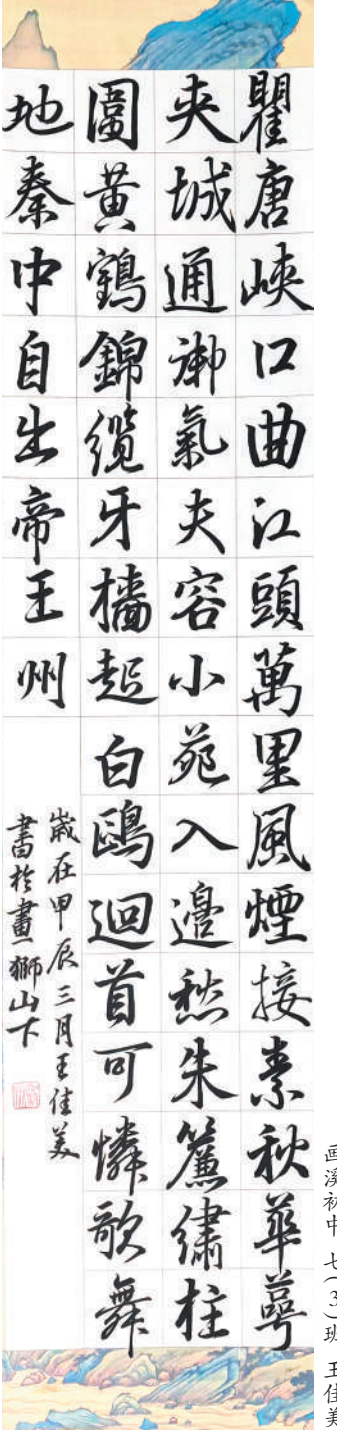 瞿唐峽口曲江頭萬里風煙接素秋華萼
夾城通御氣夫容小苑入邊愁朱簾繡柱
圖黃鶴錦纜牙檣起白鷗迴首可憐歌舞
地秦中自出帝王州
歲在甲辰三月王佳美
書於畫獅山下
画溪初中 七(3)班 王佳美